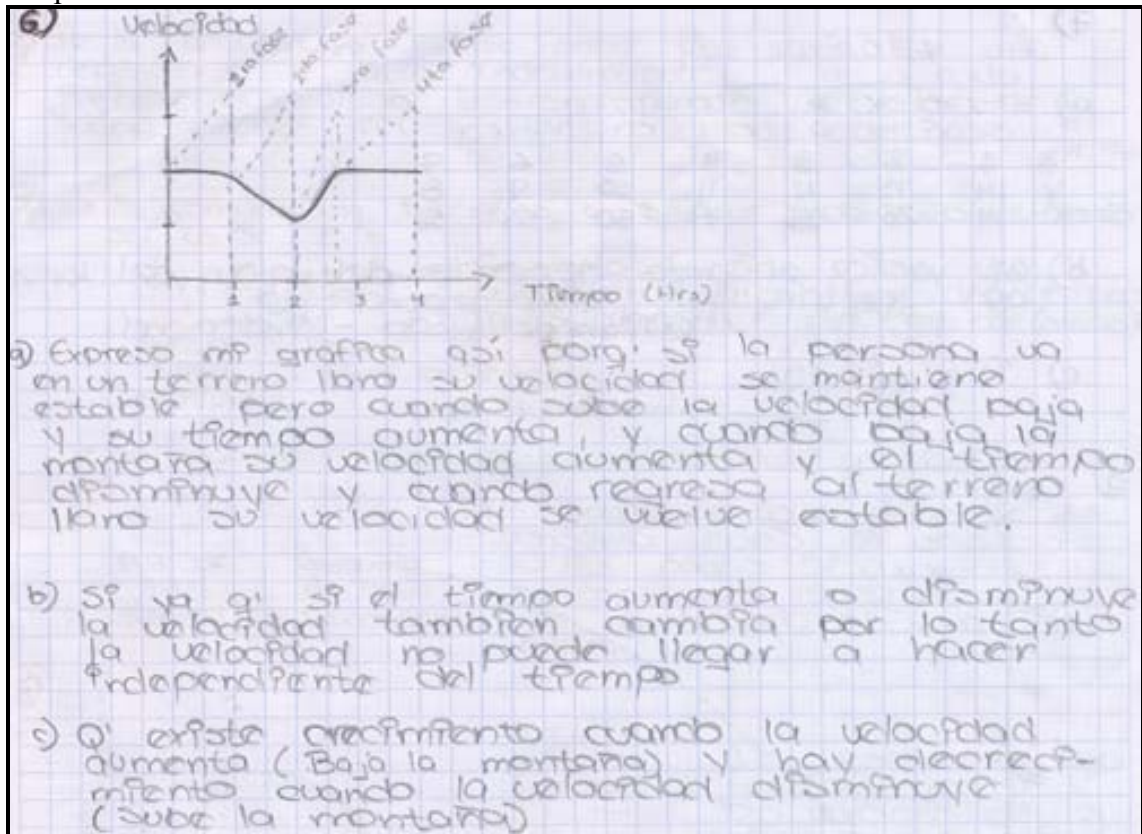 6) Velocidad
1ra fase 2da fase 3ra fase 4ta fase
1 2 3 4
Tiempo (Hrs)
a) Expreso mi gráfica así porq' si la persona va
en un terreno llano su velocidad se mantiene
estable pero cuando sube la velocidad baja
y su tiempo aumenta, y cuando baja la
montaña su velocidad aumenta y el tiempo
disminuye y cuando regresa al terreno
llano su velocidad se vuelve estable.
b) Si ya q' si el tiempo aumenta o disminuye
la velocidad tambien cambia por lo tanto
la velocidad no puede llegar a hacer
independiente del tiempo
c) Q' existe crecimiento cuando la velocidad
aumenta (Baja la montaña) y hay decreci-
miento cuando la velocidad disminuye
(sube la montaña)